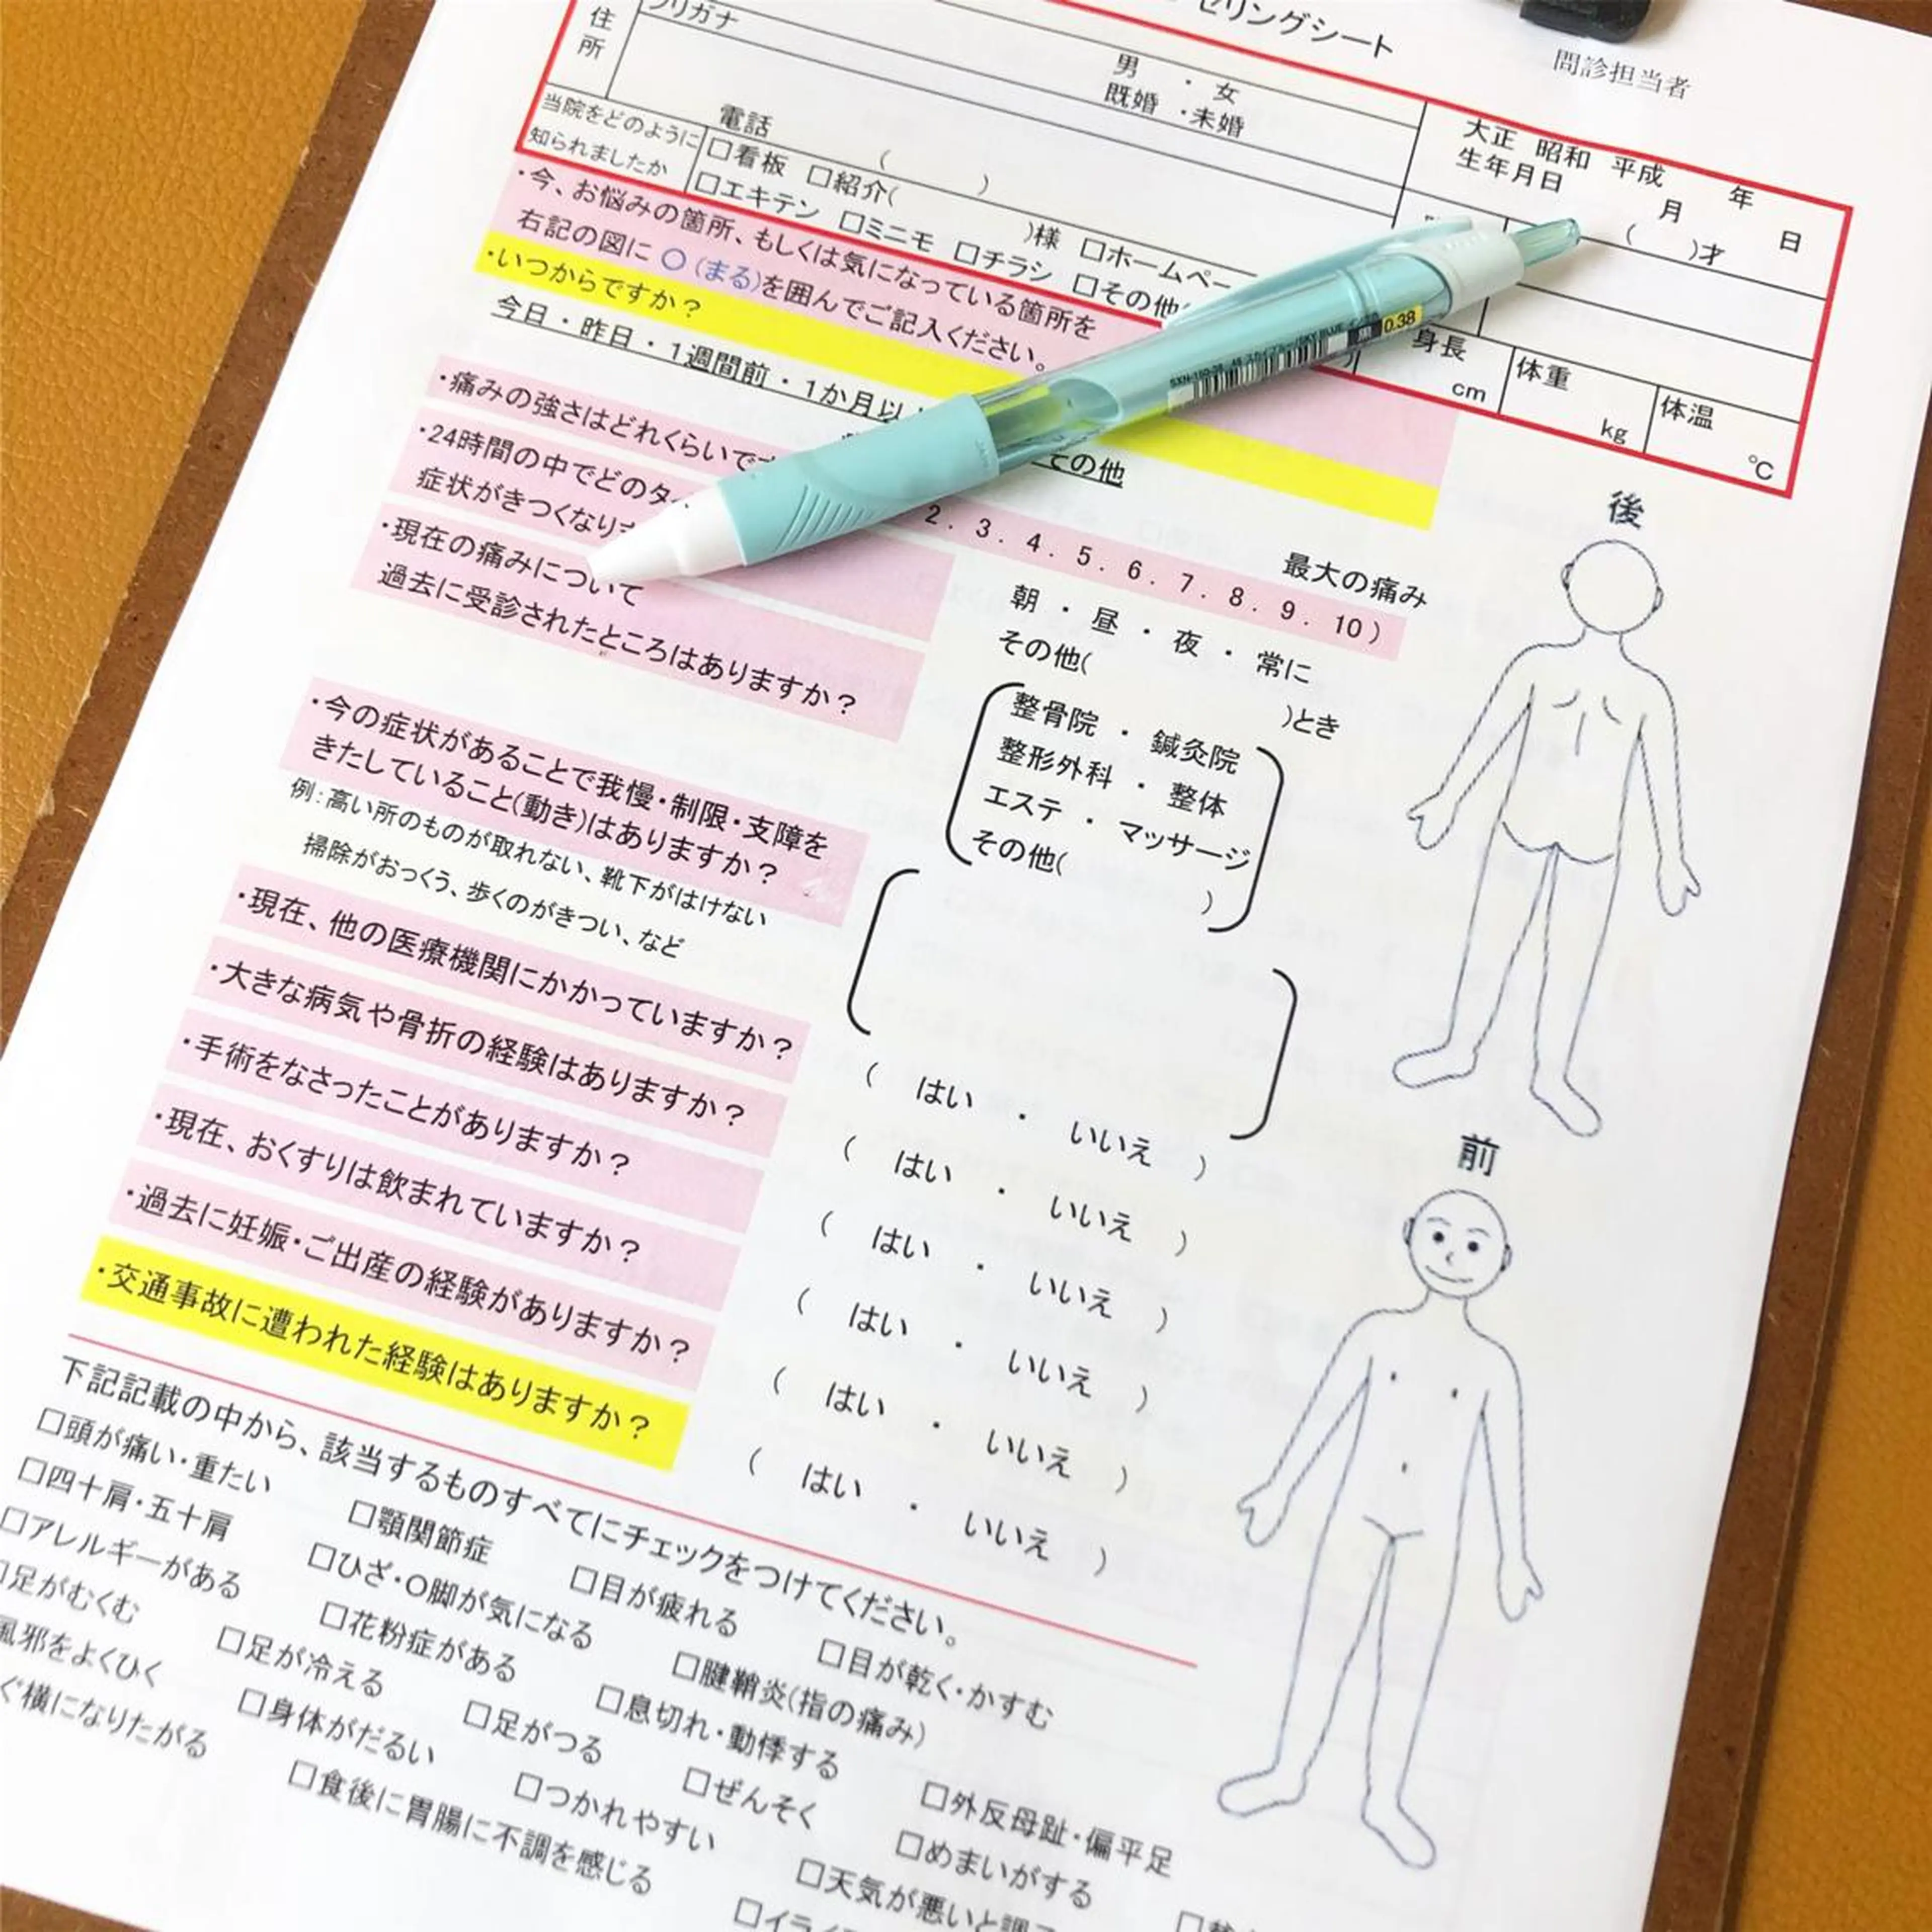 セリングシート
問診担当者
フリガナ
住所
男 ・ 女
既婚 ・未婚
大正 昭和 平成
生年月日
年 月 日
( )才
電話
( )
当院をどのように
知られましたか
□看板 □紹介( )様 □ホームペー
□エキテン □ミニモ □チラシ □その他(
身長
cm
体重
kg
体温
℃
SXN-150-38
0.38
・今、お悩みの箇所、もしくは気になっている箇所を
右記の図に ○(まる)を囲んでご記入ください。
・いつからですか?
今日・昨日・1週間前・1か月以
その他
・痛みの強さはどれくらいで
2. 3. 4. 5. 6. 7. 8. 9. 10)
最大の痛み
・24時間の中でどのタ
症状がきつくなり
朝 ・ 昼 ・ 夜 ・ 常に
その他( )とき
・現在の痛みについて
過去に受診されたところはありますか?
整骨院 ・ 鍼灸院
整形外科 ・ 整体
エステ ・ マッサージ
その他( )
・今の症状があることで我慢・制限・支障を
きたしていること(動き)はありますか?
例:高い所のものが取れない、靴下がはけない
掃除がおっくう、歩くのがきつい、など
・現在、他の医療機関にかかっていますか?
( はい ・ いいえ )
・大きな病気や骨折の経験はありますか?
( はい ・ いいえ )
・手術をなさったことがありますか?
( はい ・ いいえ )
・現在、おくすりは飲まれていますか?
( はい ・ いいえ )
・過去に妊娠・ご出産の経験がありますか?
( はい ・ いいえ )
・交通事故に遭われた経験はありますか?
( はい ・ いいえ )
後
前
下記記載の中から、該当するものすべてにチェックをつけてください。
□頭が痛い・重たい □顎関節症 □目が疲れる □目が乾く・かすむ
□四十肩・五十肩 □ひざ・O脚が気になる □腱鞘炎(指の痛み)
□アレルギーがある □花粉症がある □息切れ・動悸する □外反母趾・偏平足
□足がむくむ □足が冷える □足がつる □ぜんそく □めまいがする
風邪をよくひく □身体がだるい □つかれやすい □天気が悪いと調
ぐ横になりたがる □食後に胃腸に不調を感じる □イライ